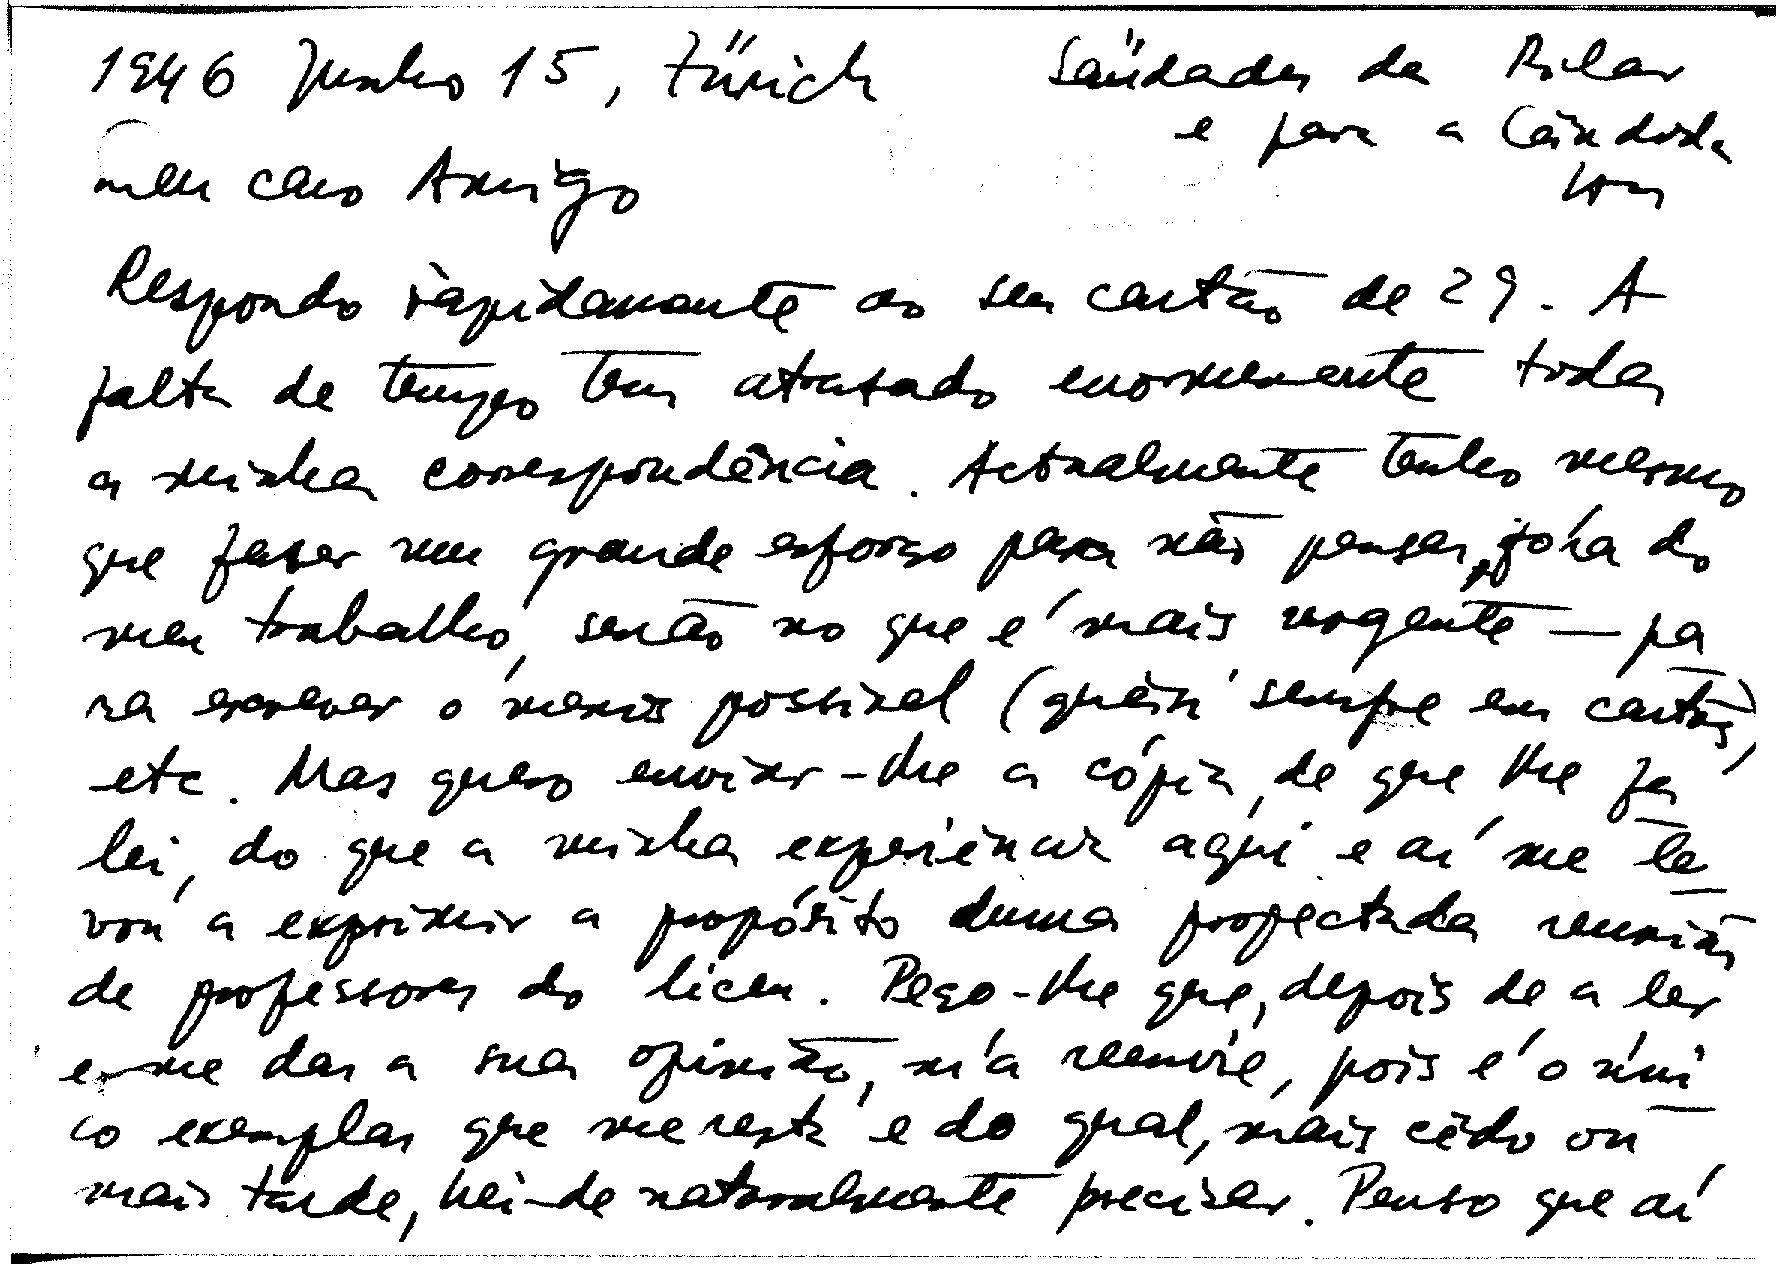 1946 Junho 15, Zürich
Saüdades da Pilar
e para a Cândida
meu caro Amigo
Respondo ràpidamente ao seu cartão de 29. A
falta de tempo tem atrasado enormemente toda
a minha correspondência. Actualmente tenho mesmo
que faser um grande esforço para não pensar, fóra do
meu trabalho, senão no que é mais urgente — pa
ra escrever o menos possivel (quási sempre em cartões),
etc. Mas quero enviar-lhe a cópia, de que lhe fa
lei, do que a minha experiência aqui e aí me le
vou a exprimir a propósito duma projectada reunião
de professores do liceu. Peço-lhe que, depois de a ler
e me dar a sua opinião, m'a reenvie, pois é o úni
co exemplar que me resta e do qual, mais cêdo ou
mais tarde, hei-de naturalmente precisar. Penso que aí